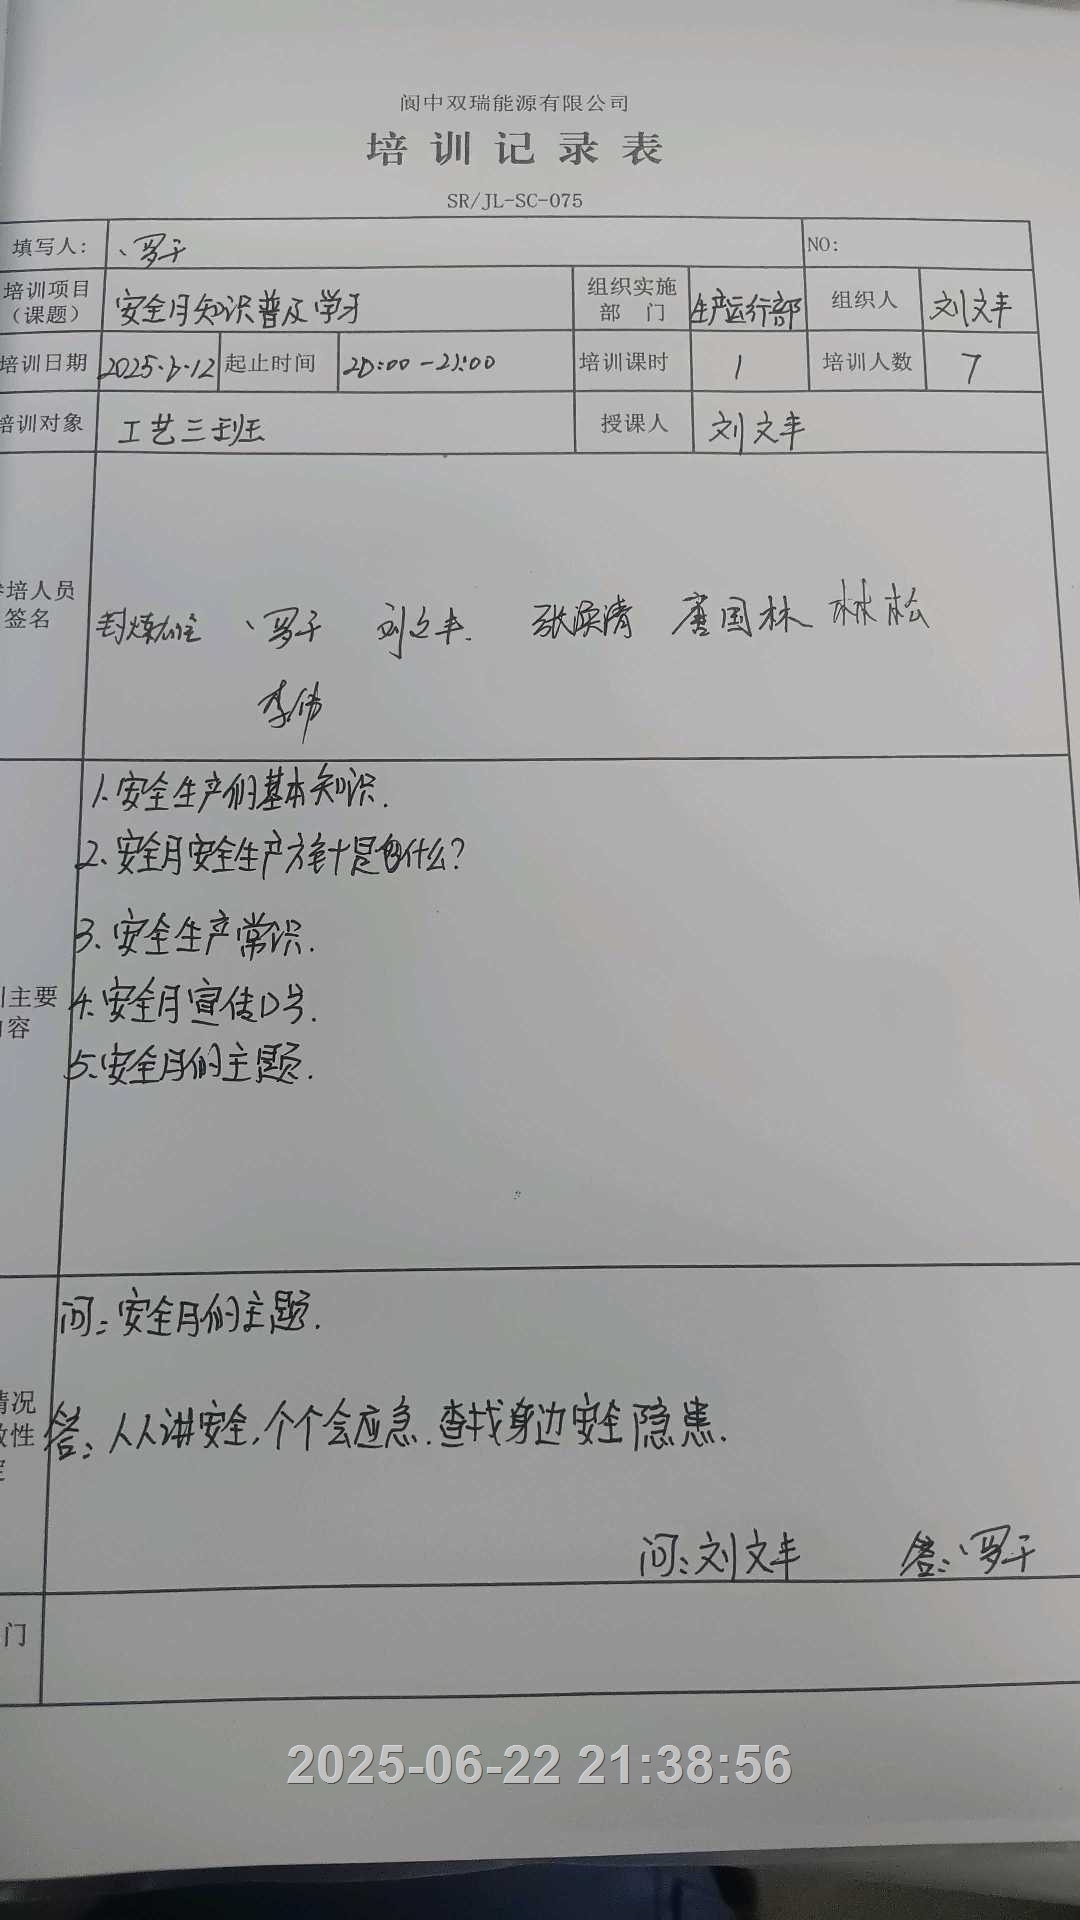 阆中双瑞能源有限公司
培训记录表
SR/JL-SC-075
填写人: 罗干 NO:
培训项目（课题） 安全月知识普及学习 组织实施部门 生产运行部 组织人 刘文丰
培训日期 2025.6.12 起止时间 20:00-21:00 培训课时 1 培训人数 7
培训对象 工艺三班 授课人 刘文丰
参培人员签名
罗干 刘文丰. 张 清 唐国林 林松
李伟
1.安全生产的基本知识.
2、安全月安全生产方针是包什么?
3、安全生产常识.
训主要 4.安全月宣传口号.
内容
5.安全月的主题.
问:安全月的主题.
情况
答:人人讲安全,个个会应急.查找身边安全隐患.
效性
定
问:刘文丰 答:罗干
门
2025-06-22 21:38:56